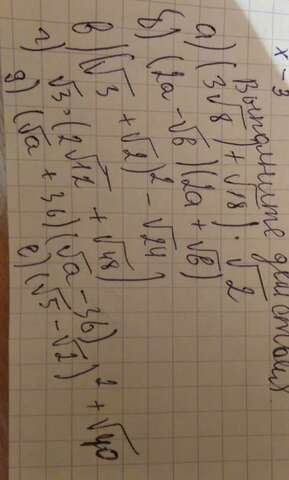 x-3
Выполните действия.
а) (3√8 + √18) · √2
б) (2a - √b)(2a + √b)
в) (√3 + √2)² - √24
г) √3 · (2√12 + √48)
д) (√a + 3b)(√a - 3b)
е) (√5 - √2)² + √40